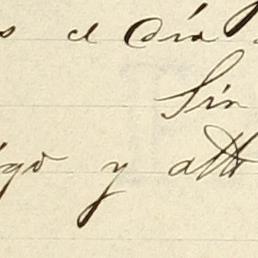 s el día
Sin
igo y atto